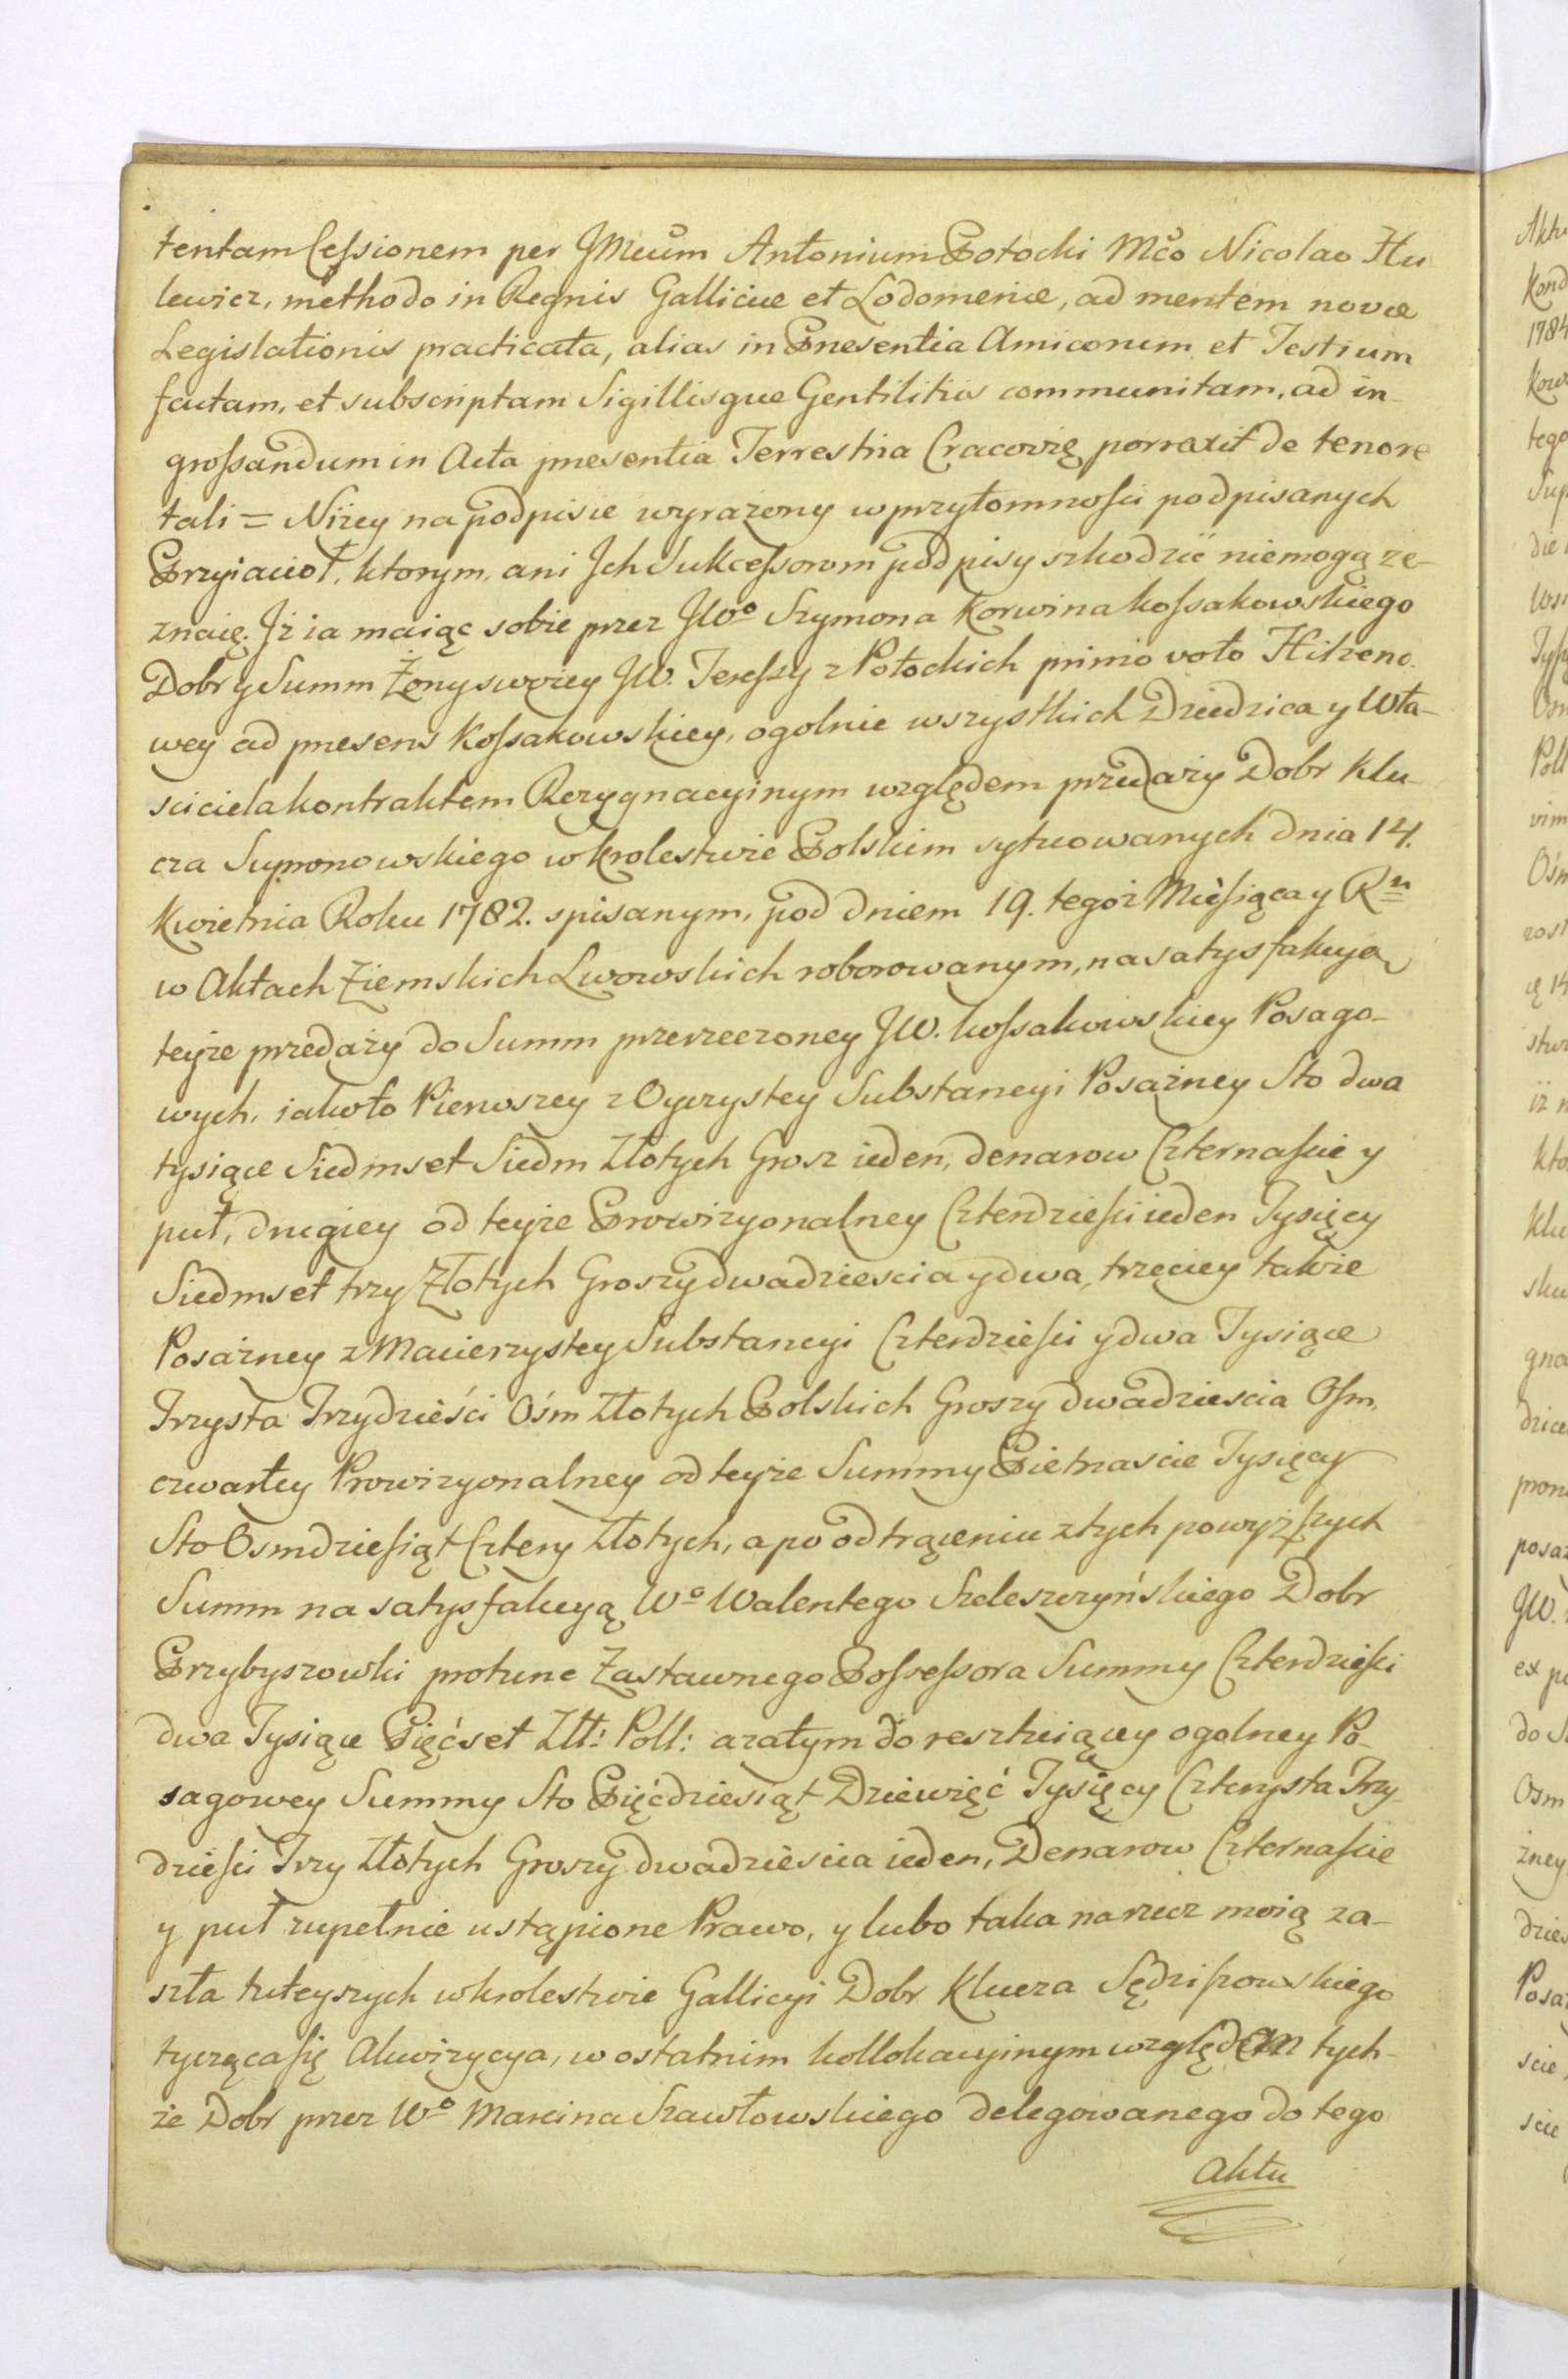 tentam Cessionem per JMcum Antonium Potocki Mco Nicolao Hu
lewicz, methodo in Regnis Galliciæ et Lodomeriæ, ad mentem novæ
Legislationis practicata, alias in Præsentia Amicorum et Testium
factam, et subscriptam Sigillisque Gentilitiis communitam, ad in-
grossandum in Acta præsentia Terrestria Cracovię porrexit de tenore
tali = Niżey na podpisie wyrażony w przytomności podpisanych
Przyiacioł, ktorym, ani Jch Sukcessorom podpisy szkodzić niemogą ze-
znaię. Jż ia maiąc sobie przez JWo Szymona Korwina Kossakowskiego
Dobr y Summ Żony swoiey JW. Teressy z Potockich primo voto Hilzeno-
wey ad præsens Kossakowskiey, ogolnie wszystkich Dziedzica y Wła-
sciciela kontraktem Rezygnacyinym względem przedaży Dobr Klu-
cza Supronowskiego w krolestwie Polskim sytuowanych dnia 14.
Kwietnia Roku 1782. spisanym, pod dniem 19. tegoż Miesiąca y Ru
w Aktach Ziemskich Lwowskich roborowanym, na satysfakcyą
teyże przedaży do Summ przerzeczoney JW. Kossakowskiey Posago-
wych, iakoto Pierwszey z Oyczystey Substancyi Posażney Sto dwa
tysiące Siedmset Siedm Złotych Grosz ieden, denarow Czternaście y
puł, drugiey od teyże Prowizyonalney Czterdzieści ieden Tysięcy
Siedmset trzy Złotych Groszy dwadziescia y dwa, trzeciey także
Posażney z Macierzystey Substancyi Czterdzieści y dwa Tysiące
Trzysta Trzydzieści Ośm Złotych Polskich Groszy dwadziescia Osm,
czwartey Prowizyonalney od teyże Summy Pietnascie Tysięcy
Sto Osmdziesiąt Cztery Złotych, a po odtrąceniu z tych powyższych
Summ na satysfakcyą Wo Walentego Szeleszczyńskiego Dobr
Przybyszowki protunc Zastawnego Possessora Summy Czterdzieści
dwa Tysiące Pięćset Złł: Poll: azatym do reszkuiącey ogolney Po-
sagowey Summy Sto Pięćdziesiąt Dziewięć Tysięcy Czterysta Trzy-
dzieści Trzy Złotych Groszy dwadzieścia ieden, Denarow Czternaście
y puł zupełnie ustąpione Prawo, y lubo taka na rzecz moią za-
szła tuteyszych w krolestwie Gallicyi Dobr Klucza Sędziszowskiego
tycząca się Akwizycya, w ostatnim kollokacyinym względem tych-
że Dobr przez Wo Marcina Szawłowskiego delegowanego do tego
Aktu